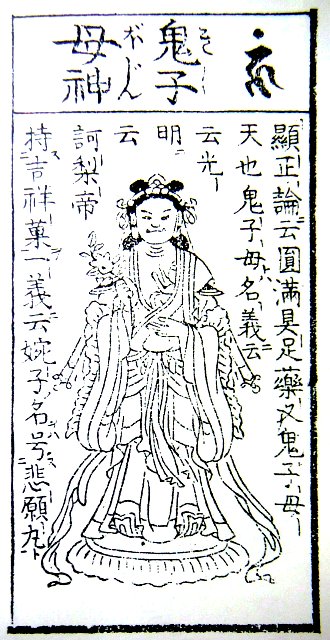 鬼子
きし
母神
顯正論云圓滿具足藥叉鬼子母
天也鬼子母名義云
云光
明
云
訶梨帝
持吉祥菓一義云婉子名号悲願九